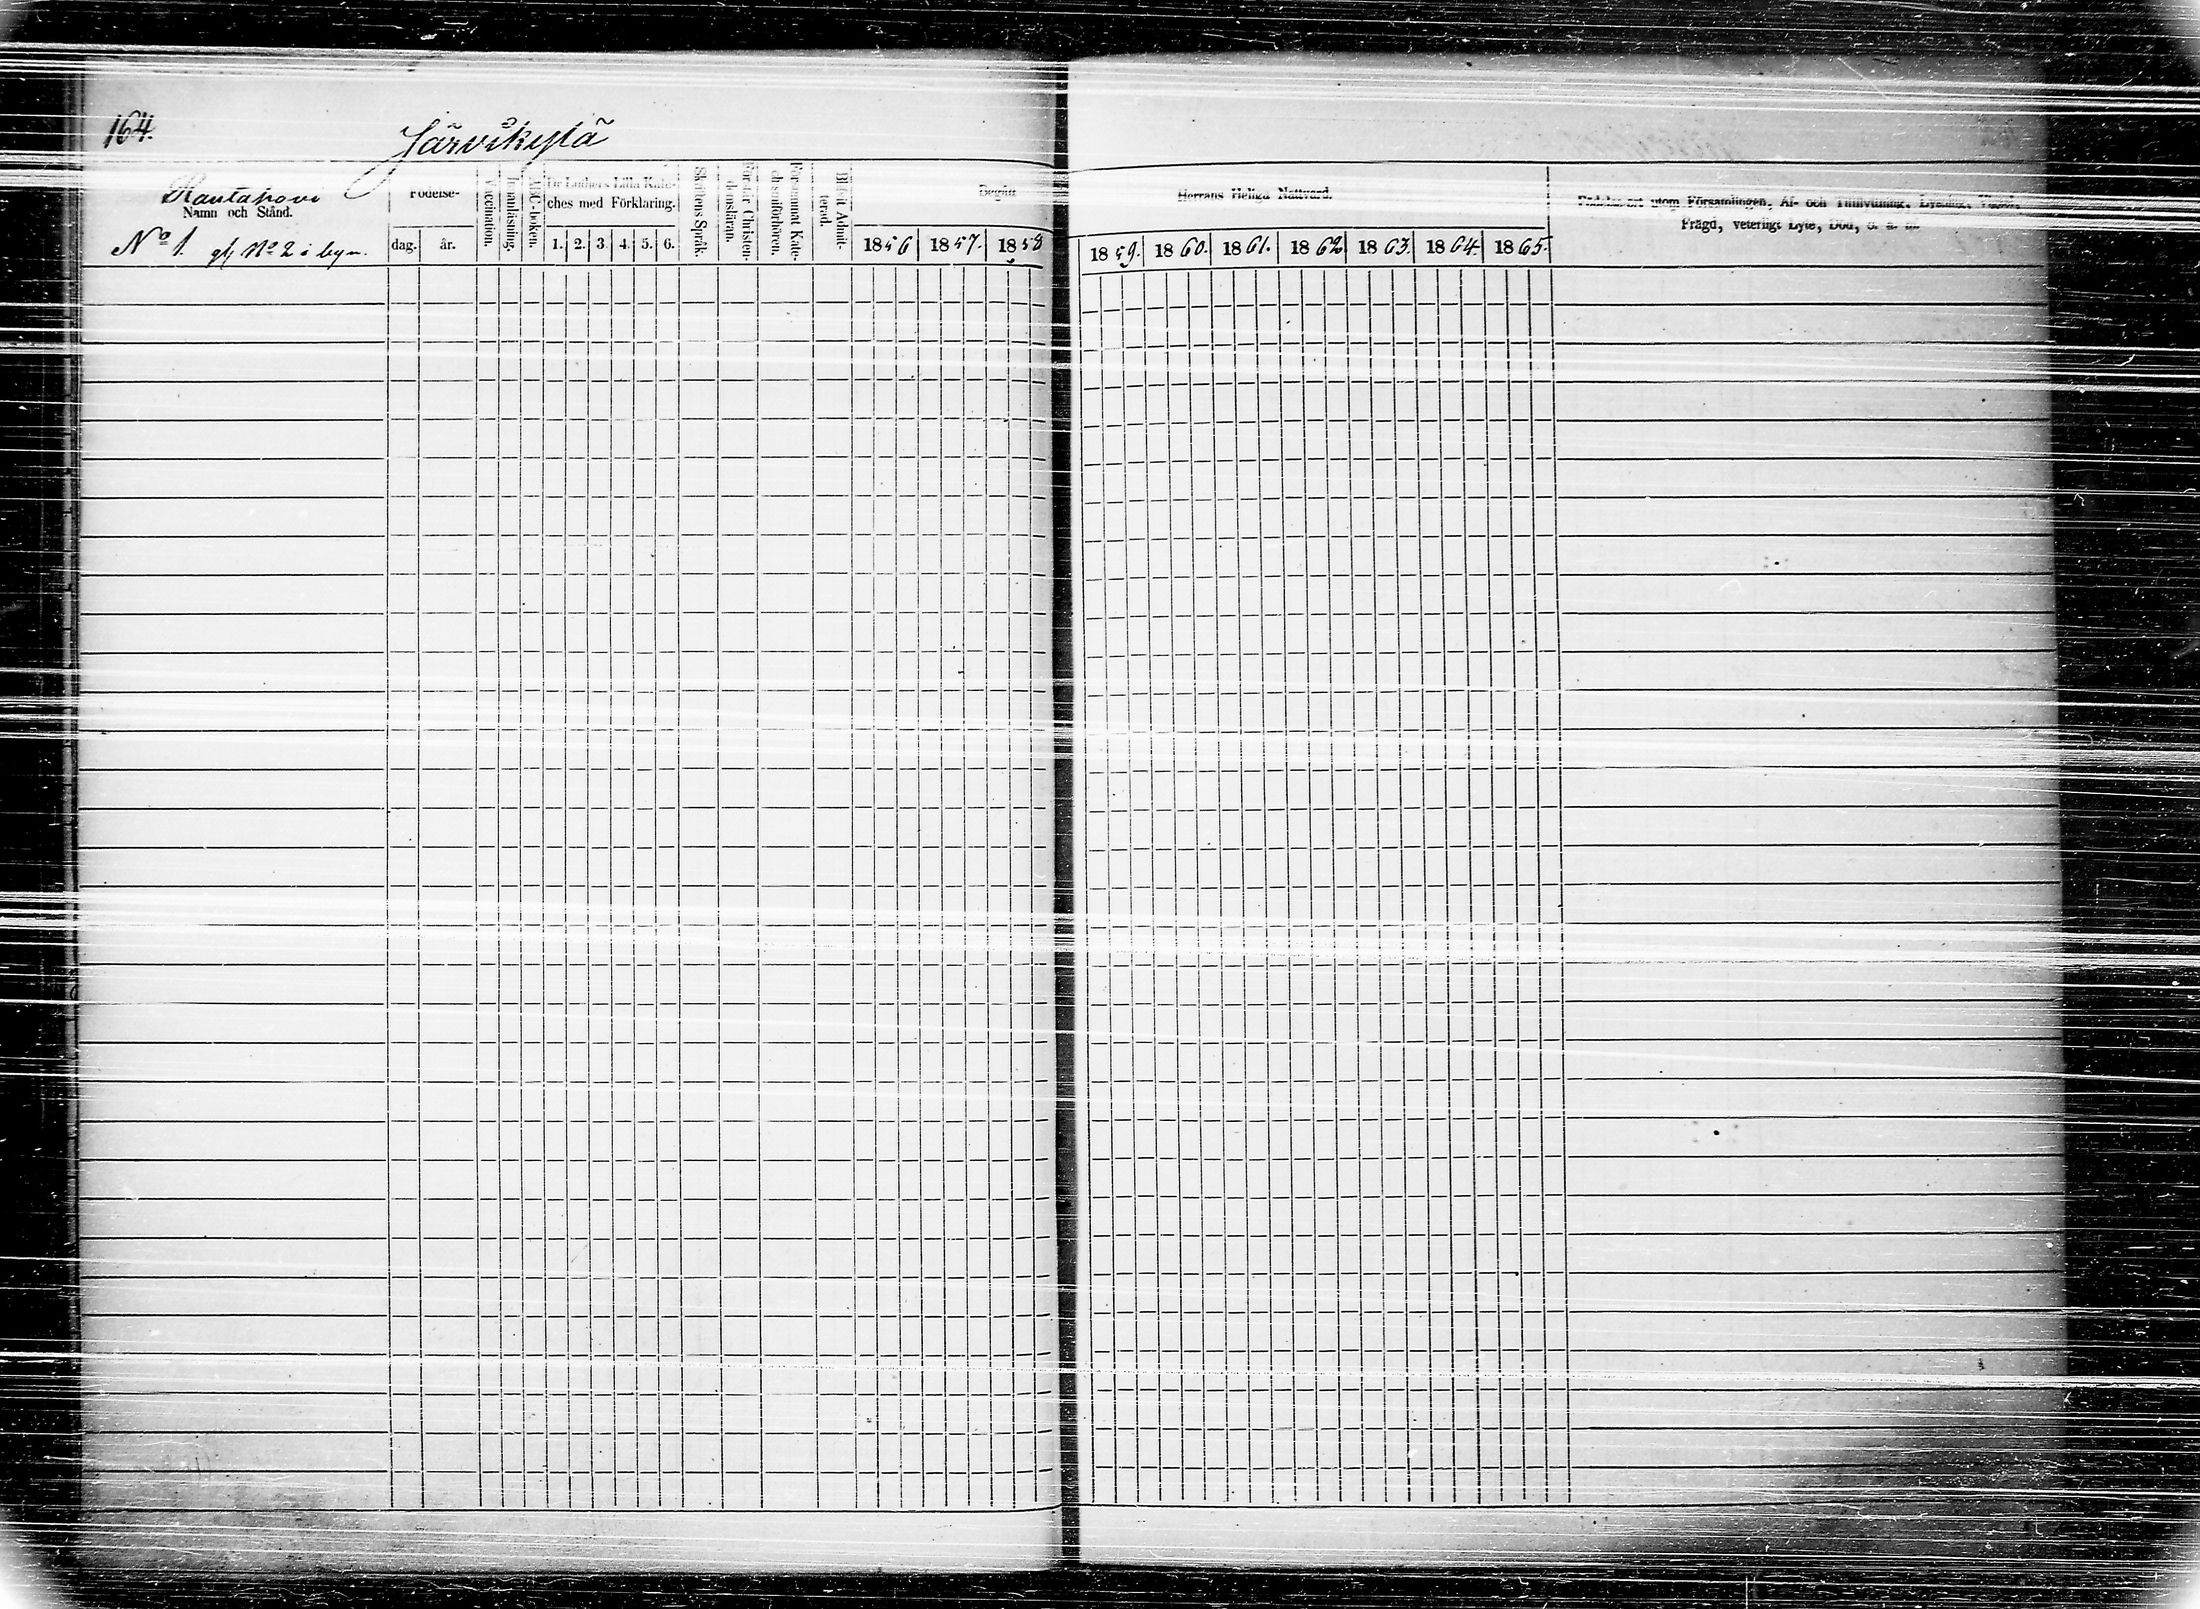 164.
Järvikylä
Rantahovi
Namn och Stånd.
No 1. gl. No 2 i byn.
Födelse-
dag. år.
Vaccination.
Innanläsning.
ABC-boken.
Dr Luthers Lilla Kate-
ches med Förklaring.
1. 2. 3. 4. 5. 6.
Skriftens Språk.
Christen-
domsläran.
Kate-
chismiförhören.
Blifvit Admit-
terad.
Begått
1856 1857. 1858
Herrans Heliga Nattvard.
1859. 1860. 1861. 1862 1863. 1864. 1865.
Födelse-ort utom Församlingen, Af- och Tillflyttning, Lysning, Vigsel,
Frägd, veterligt Lyte, Död, o. a. m.